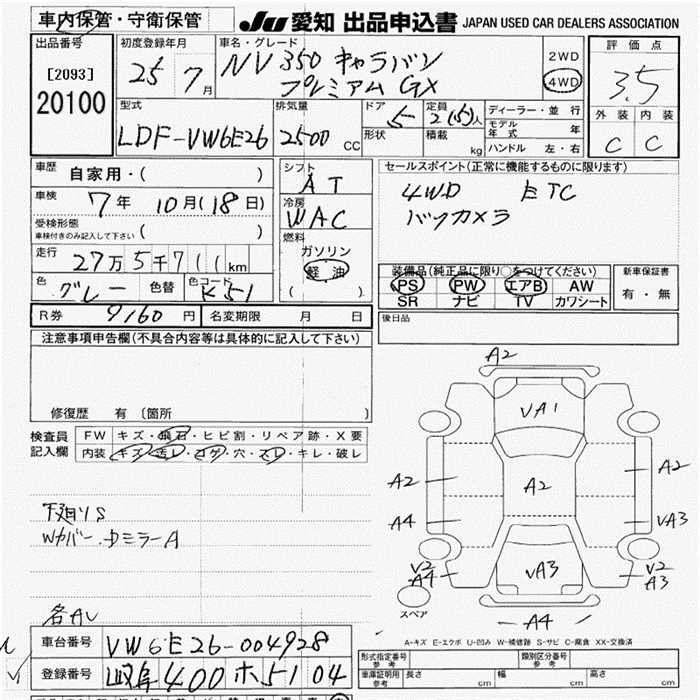 車内保管・守衛保管
JU 愛知 出品申込書 JAPAN USED CAR DEALERS ASSOCIATION
出品番号
[2093]
20100
初度登録年月
25 7月
車名・グレード
NV350 キャラバン
プレミアムGX
2WD
4WD
評価点
3.5
外装 内装
C C
型式
LDF-VW6E26
排気量
2500 CC
ドア
5
形状
定員
2(5)人
積載 kg
ディーラー・並行
モデル年式 年
ハンドル 左・右
車歴
自家用・( )
車検
7年 10月(18日)
受検形態
車検付きのみ記入して下さい ( )
走行
27万5千7 km
色
グレー
色替
色コード
K51
シフト
AT
冷房
WAC
燃料
ガソリン
軽油
( )
セールスポイント(正常に機能するものに限ります)
4WD ETC
バックカメラ
装備品(純正品に限り○をつけてください)
PS PW エアB AW
SR ナビ TV カワシート
新車保証書
有・無
R券 9160円 名変期限 月 日
後日品
注意事項申告欄(不具合内容等は具体的に記入して下さい)
修復歴 有 〔箇所 〕
検査員記入欄
FW キズ・飛石・ヒビ割・リペア跡・X要
内装 キズ・汚レ・コゲ・穴・スレ・キレ・破レ
下廻りS
Wカバー・DミラーA
各AU
A2
VA1
A2
A2
A2
A4
VA3
V2
A4
VA3
V2
A3
スペア
A4
A-キズ E-エクボ U-凹み W-補修跡 S-サビ C-腐食 XX-交換済
車台番号
VW6E26-004928
登録番号
岐阜400ホ5104
形式指定番号
参考
類別区分番号
参考
車庫証明用
参考
長さ cm 幅 cm 高さ cm